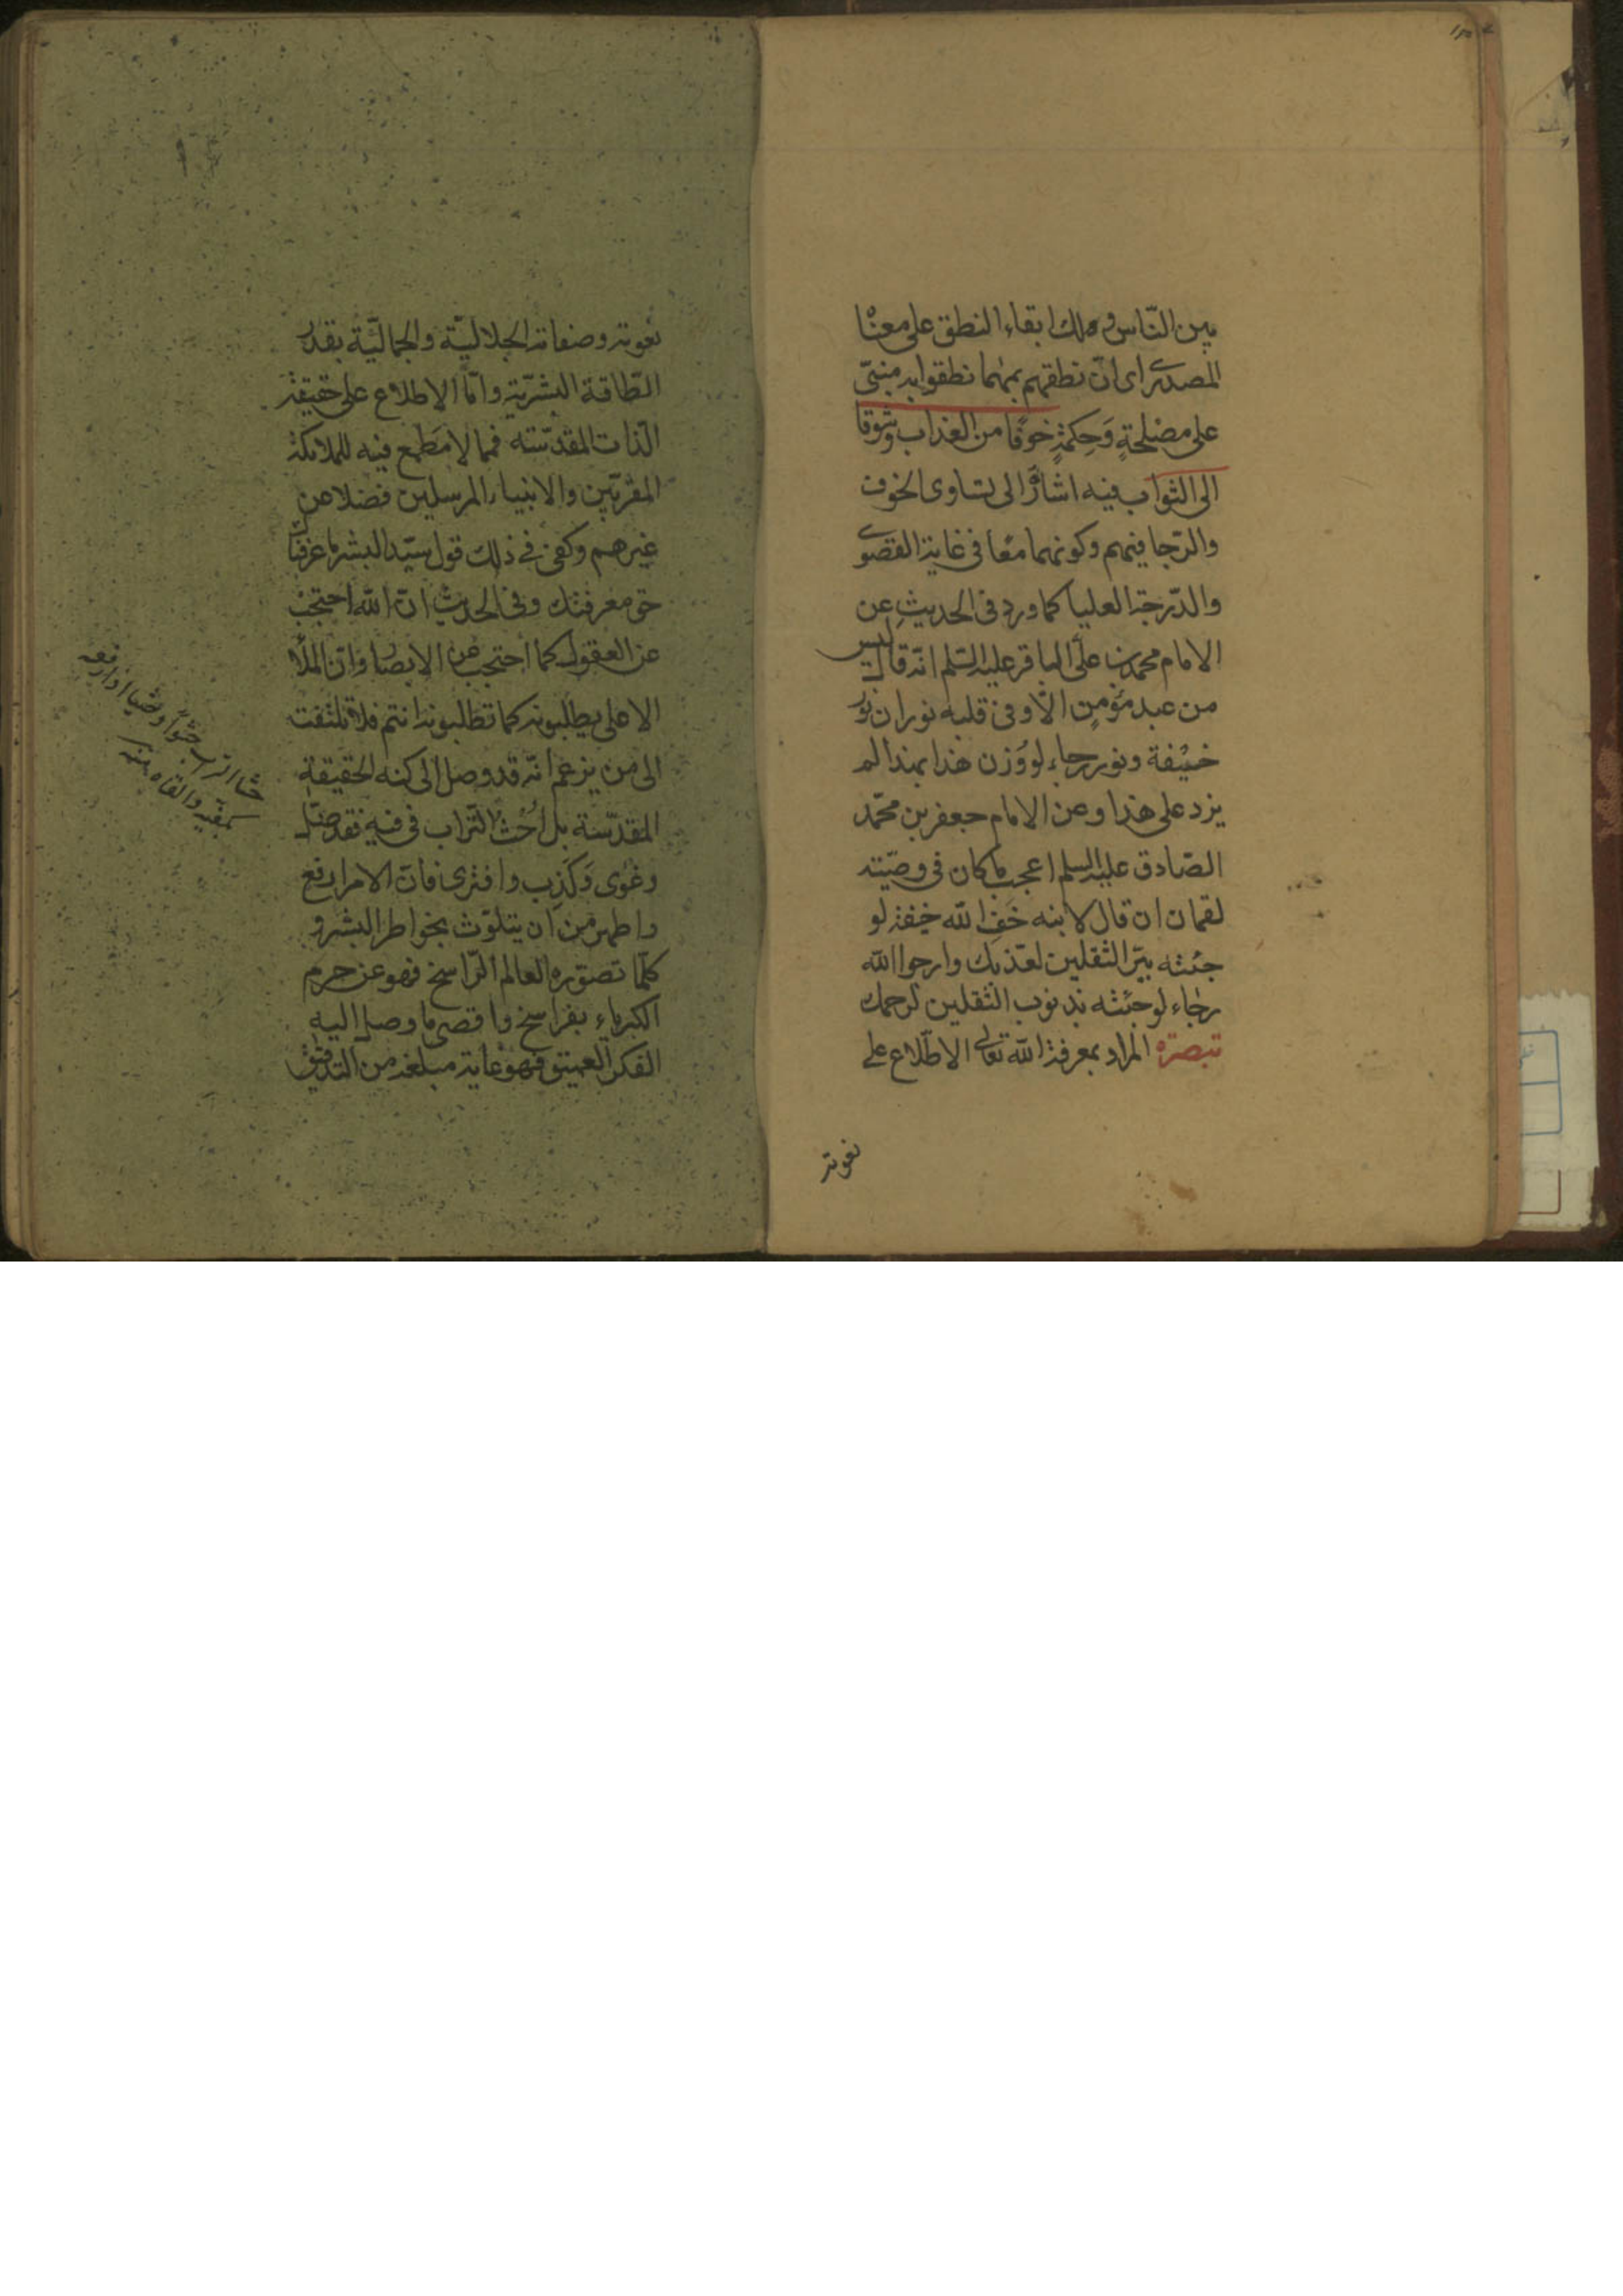 بين النّاس ولك ابقاء النطق على معناه
المصدرى اى انّ نطقهم بمهما نطقوا به مبنىّ
على مصلحةٍ وَحِكمةٍ خوفًا من العذاب وشوقا
الى الثواب فيه اشارة الى تساوى الخوف
والرّجا فيهم وكونهما معًا فى غاية القصوى
والدّرجة العليا كما ورد فى الحديثِ عن
الامام محمد بن علىّ الباقر عليه السّلم انّه قال ليس
من عبد مؤمنٍ الّا وفى قلبه نوران نور
خيفة ونور رجاء لو وُزن هذا بهذا لم
يزد على هذا وعن الامام جعفر بن محمّد
الصّادق عليه السلم اعجب ما كان فى وصيّته
لقمان ان قال لابنه خَفِ الله خيفة لو
جئته ببرّ الثقلين لعذّبك وارجوا الله
رجاء لو جئته بذنوب الثقلين لرحمك
تبصرة المراد بمعرفة الله تعالى الاطّلاع على
نعوته
نعوته وصفاته الجلاليّة والجماليّة بقدر
الطّاقة البشريّة وامّا الاطلاع على حقيقة
الذّات المقدّسة فمما لا مَطمع فيه للملائكة
المقرّبين والانبياء المرسلين فضلا عن
غيرهم وكفى فى ذلك قول سيّد البشر ما عرفناك
حق معرفتك وفى الحديث انّ الله احتجب
عن العقول كما احتجب عن الابصار وانّ الملأ
الاعلى يطلبونه كما تطلبونه انتم فلا تلتفت
الى من يزعم انّه قد وصل الى كنه الحقيقة
المقدّسة بل اُحْثُ التّراب فى فيه فقد ضلّ
وغوى وَكَذِب وافترى فانّ الامر ارفع
واطهر من ان يتلوّث بخواطر البشر و
كلّما تصوّره العالم الرّاسخ فهو عن حرم
الكبرياء بفراسخ واقصى ما وصل اليه
الفكر العميق فهو غاية مبلغه من التدقيق
حثا التراب حثوًا وحثيا اذا رفعه
بيديه والقاه منه